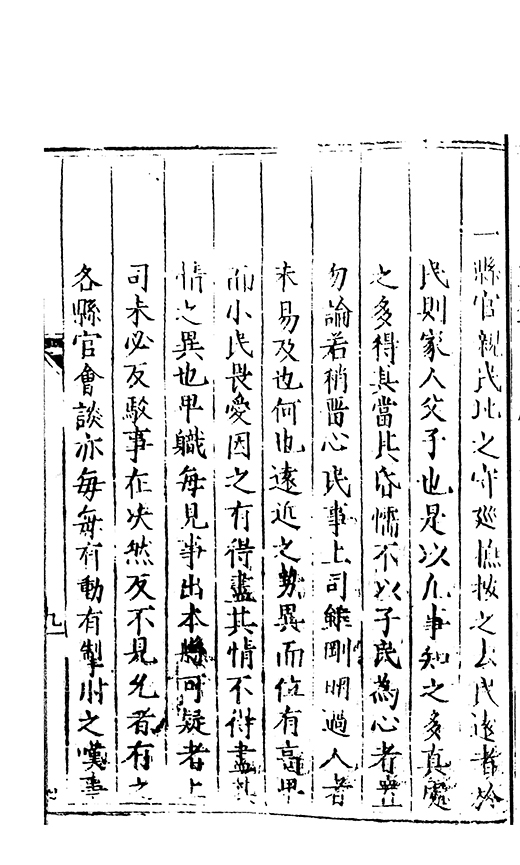 一縣官親民比之守廵撫按之去民遠者於
民則家人父子也是以凡事知之多真處
之多得其當其昏懦不以子民為心者無
勿論若稍畱心民事上司雖剛明過人者
未易及也何也遠近之勢異而位有高卑
而小民畏愛因之有得盡其情不得盡其
情之異也卑職每見事出本縣可疑者上
司未必反駁事在决然反不見允者有之
各縣官會談亦每每有動有掣肘之嘆事
九